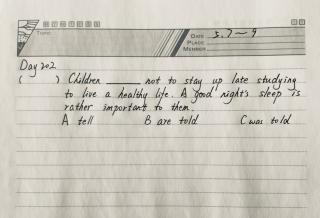 TOPIC
DATE 3.7~9
PLACE
MEMBER
Day 202
( ) Children ______ not to stay up late studying
to live a healthy life. A good night's sleep is
rather important to them.
A tell B are told C was told